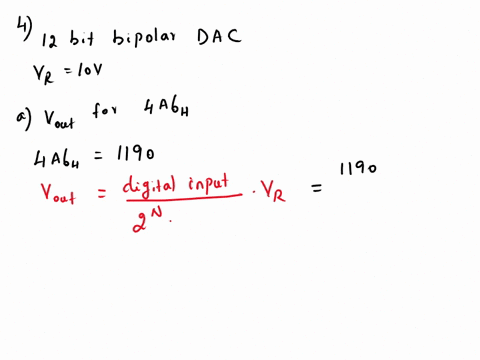 4) 12 bit bipolar DAC
V_R = 10V
a) V_out for 4A6_H
4A6_H = 1190
V_out = digital input / 2^N . V_R = 1190